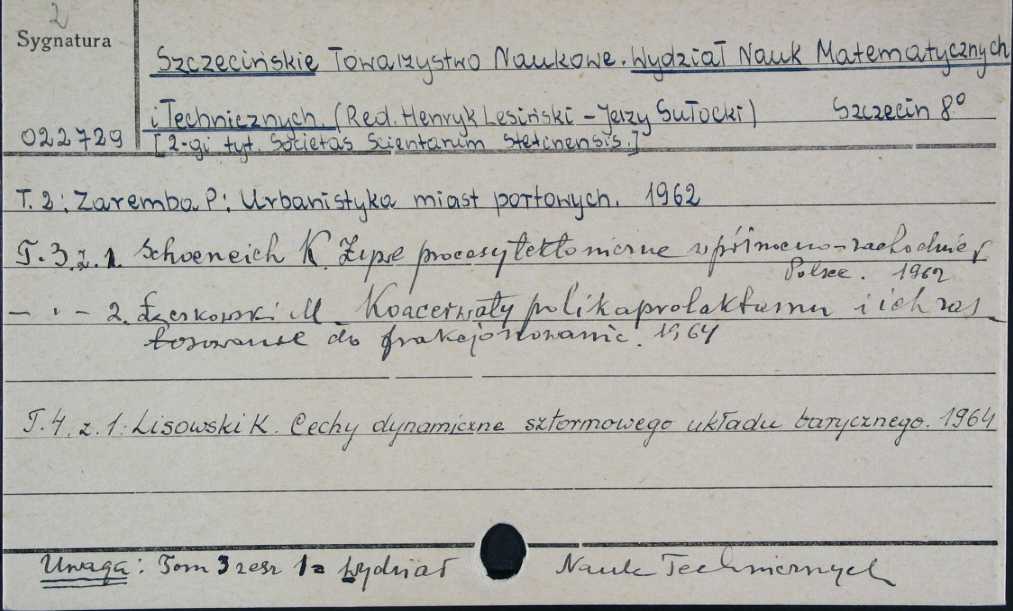 2
Sygnatura
Szczecińskie Towarzystwo Naukowe. Wydział Nauk Matematycznych
i Technicznych. (Red. Henryk Lesiński – Jerzy Sułocki) Szczecin 8°
022729
[2-gi tyt. Societas Scientarum Stetinensis.]
T. 2: Zaremba P: Urbanistyka miast portowych. 1962
T. 3. z. 1. Schoeneich K. procesy tektoniczne w północno-zachodniej
Polsce. 1962
– " – 2. M. Koacerwaty polikaprolaktamu i ich zas
tosowanie do frakcjonowania. 1964
T. 4. z. 1: Lisowski K. Cechy dynamiczne sztormowego układu barycznego. 1964
Uwaga: Tom 3 zesz 1 = Wydział Nauk Technicznych